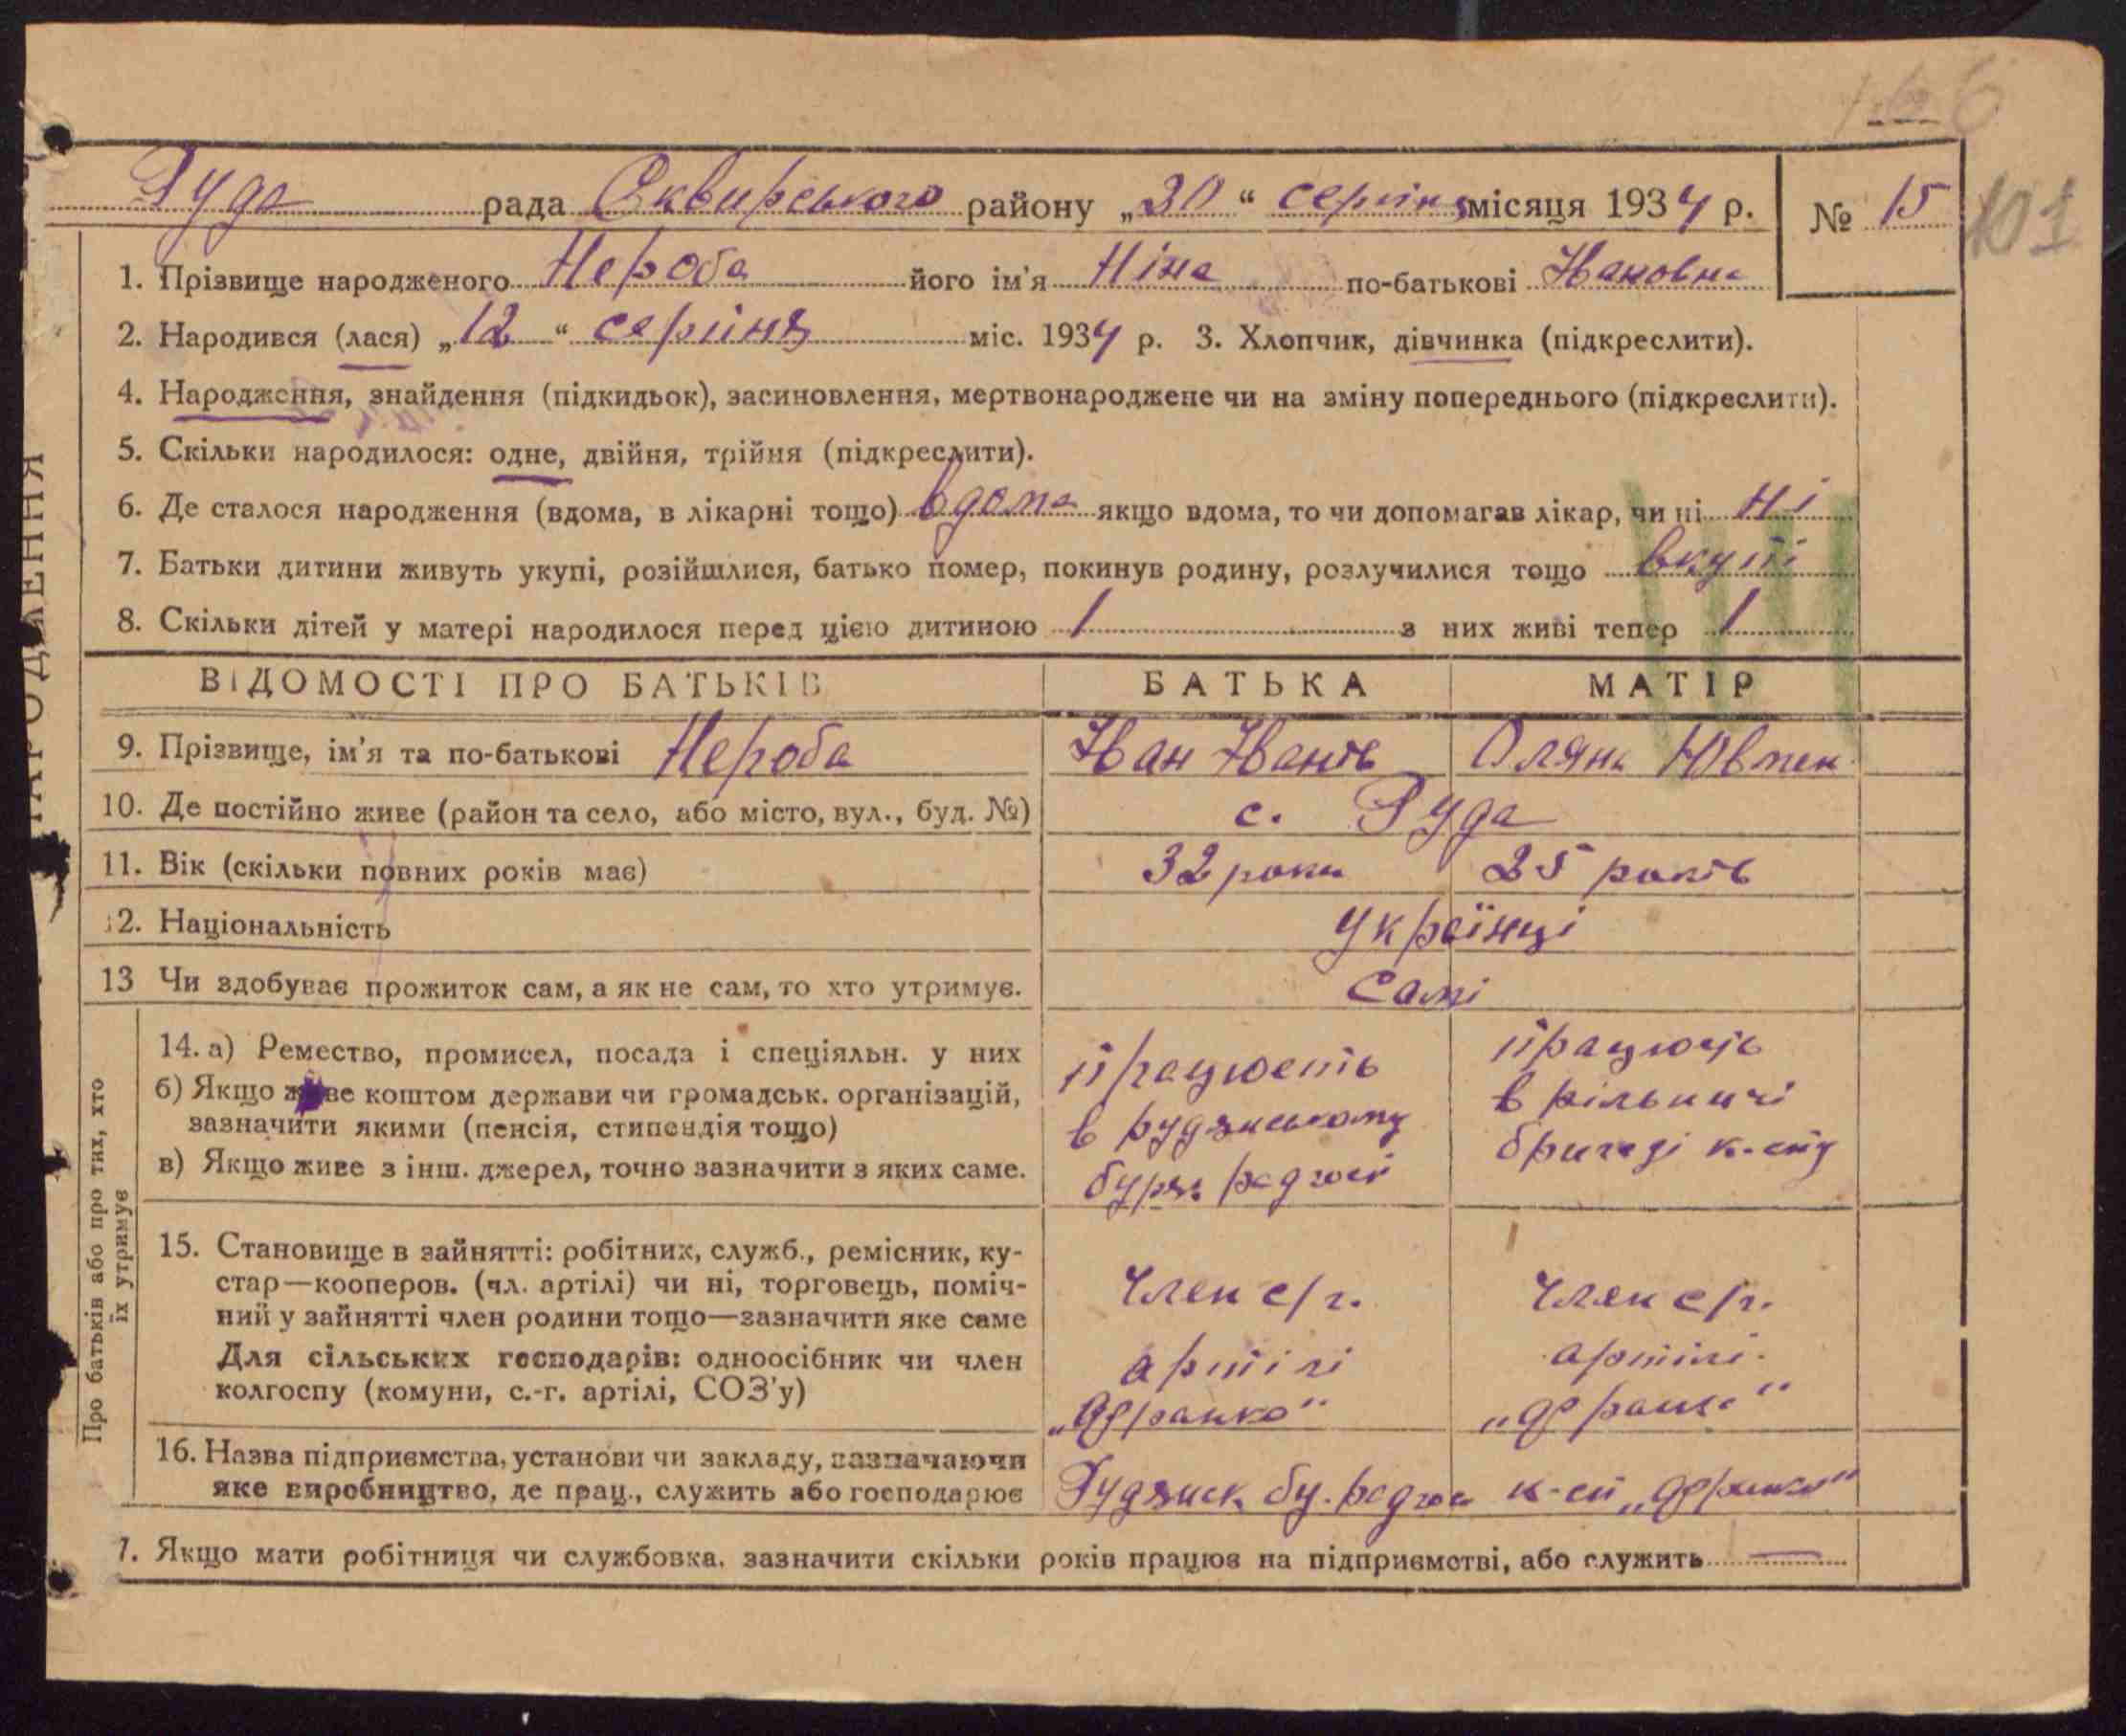 166
101
Руда рада Сквирського району „30“ серпня місяця 1934 р. № 15
1. Прізвище народженого Нероба його ім'я Ніна по-батькові Івановна
2. Народився (лася) „12“ серпня міс. 1934 р. 3. Хлопчик, дівчинка (підкреслити).
4. Народження, знайдення (підкидьок), засиновлення, мертвонароджене чи на зміну попереднього (підкреслити).
5. Скільки народилося: одне, двійня, трійня (підкреслити).
6. Де сталося народження (вдома, в лікарні тощо) вдома якщо вдома, то чи допомагав лікар, чи ні ні
7. Батьки дитини живуть укупі, розійшлися, батько помер, покинув родину, розлучилися тощо вкупі
8. Скільки дітей у матері народилося перед цією дитиною 1 з них живі тепер 1
НАРОДЖЕННЯ
ВІДОМОСТІ ПРО БАТЬКІВ БАТЬКА МАТІР
9. Прізвище, ім'я та по-батькові Нероба Іван Іванів ОлянаЮвмен
10. Де постійно живе (район та село, або місто, вул., буд. №) с. Руда
11. Вік (скільки повних років має) 32 роки 25 років
12. Національність Українці
13 Чи здобуває прожиток сам, а як не сам, то хто утримує. Самі
Про батьків або про тих, хто
їх утримує
14. а) Ремество, промисел, посада і спеціяльн. у них
б) Якщо живе коштом держави чи громадськ. організацій,
зазначити якими (пенсія, стипендія тощо)
в) Якщо живе з інш. джерел, точно зазначити з яких саме.
працюєть
в рудзиському
буряк. радгосп
працюєть
в рільничі
бригаді к-спу
15. Становище в зайнятті: робітник, служб., ремісник, ку-
стар—кооперов. (чл. артілі) чи ні, торговець, поміч-
ний у зайнятті член родини тощо—зазначити яке саме
Для сільських господарів: одноосібник чи член
колгоспу (комуни, с.-г. артілі, СОЗ'у)
Член с/г.
артілі
„Франко“
Член с/г.
артілі
„Франко“
16. Назва підприємства, установи чи закладу, зазначаючи
яке виробництво, де прац., служить або господарює
Рудзиск. бу. радгосп к-сп „Франко“
7. Якщо мати робітниця чи службовка, зазначити скільки років працює на підприємстві, або служить —